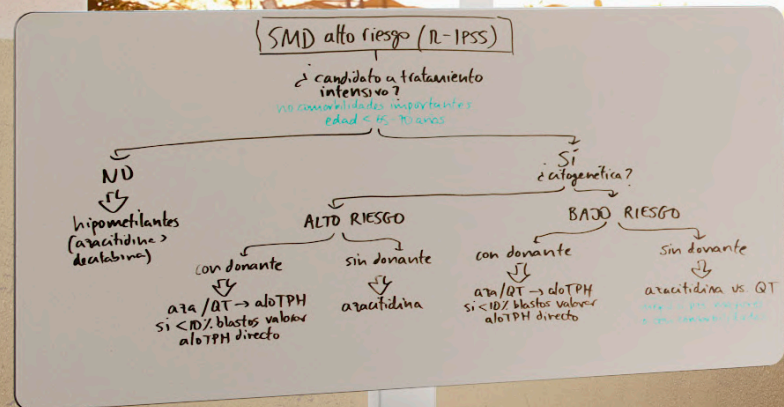 SMD alto riesgo (R-IPSS)
¿candidato a tratamiento
intensivo?
no comorbilidades importantes
edad < 65-70 años
NO
hipometilantes
(azacitidina >
decitabina)
Sí
¿citogenética?
ALTO RIESGO
con donante
aza/QT → aloTPH
si <10% blastos valorar
aloTPH directo
sin donante
azacitidina
BAJO RIESGO
con donante
aza/QT → aloTPH
si <10% blastos valorar
aloTPH directo
sin donante
azacitidina vs. QT